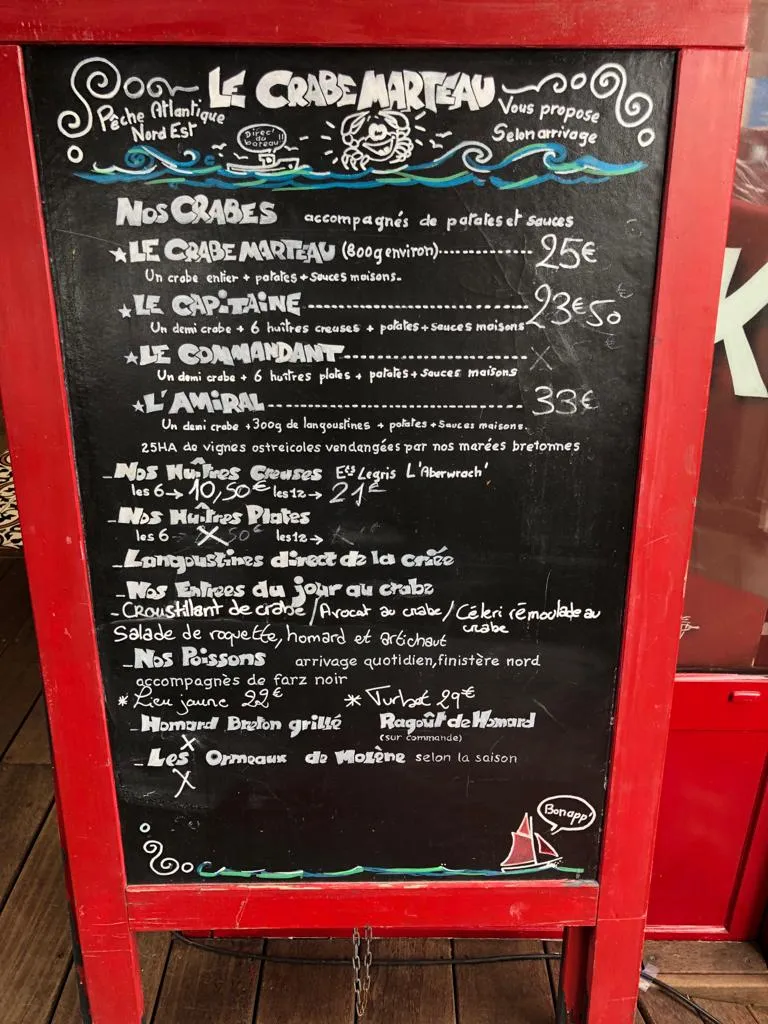 LE CRABE MARTEAU
Pêche Atlantique
Nord Est
Direc'
du
bateau!!
Vous propose
Selon arrivage
NOS CRABES accompagnés de patates et sauces
★LE CRABE MARTEAU (800g environ)............ 25€
Un crabe entier + patates + sauces maisons.
★LE CAPITAINE............ 23€50
Un demi crabe + 6 huîtres creuses + patates + sauces maisons
★LE COMMANDANT............ X
Un demi crabe + 6 huîtres plates + patates + sauces maisons
★L'AMIRAL............ 33€
Un demi crabe +300g de langoustines + patates + sauces maisons.
25HA de vignes ostreicoles vendangées par nos marées bretonnes
_Nos Huîtres Creuses Ets Legris L'Aberwrach'
les 6→ 10,50€ les 12→ 21€
_Nos Huîtres Plates
les 6 X les 12→
_Langoustines direct de la criée
_Nos Entrées du jour au crabe
-Croustillant de crabe / Avocat au crabe / Céleri rémoulade au
crabe
Salade de roquette, homard et artichaut
_Nos Poissons arrivage quotidien, finistère nord
accompagnés de farz noir
* Lieu jaune 22€ * Turbot 29€
_Homard Breton grillé Ragoût de Homard
X (sur commande)
_Les Ormeaux de Molène selon la saison
X
Bon app'
K